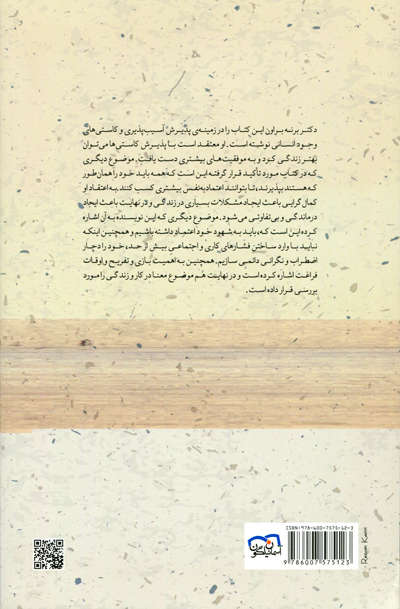 دکتر برنه براون این کتاب را در زمینه‌ی پذیرش آسیب‌پذیری و کاستی‌های
وجود انسانی نوشته است. او معتقد است با پذیرش کاستی‌ها می‌توان
بهتر زندگی کرد و به موفقیت‌های بیشتری دست یافت. موضوع دیگری
که در کتاب مورد تأکید قرار گرفته این است که همه باید خود را همان‌طور
که هستند بپذیرند، تا بتوانند اعتماد به‌نفس بیشتری کسب کنند. به اعتقاد او
کمال گرایی باعث ایجاد مشکلات بسیاری در زندگی و در نهایت باعث ایجاد
درماندگی و بی‌تفاوتی می‌شود. موضوع دیگری که این نویسنده به آن اشاره
کرده این است که، باید به شهود خود اعتماد داشته باشیم و همچنین اینکه
نباید با وارد ساختن فشارهای کاری و اجتماعی بیش از حد، خود را دچار
اضطراب و نگرانی دائمی سازیم. همچنین به اهمیت بازی و تفریح و اوقات
فراغت اشاره کرده است و در نهایت هم موضوع معنا در کار و زندگی را مورد
بررسی قرار داده است.
ISBN: 978-600-7575-12-3
9 786007 575123